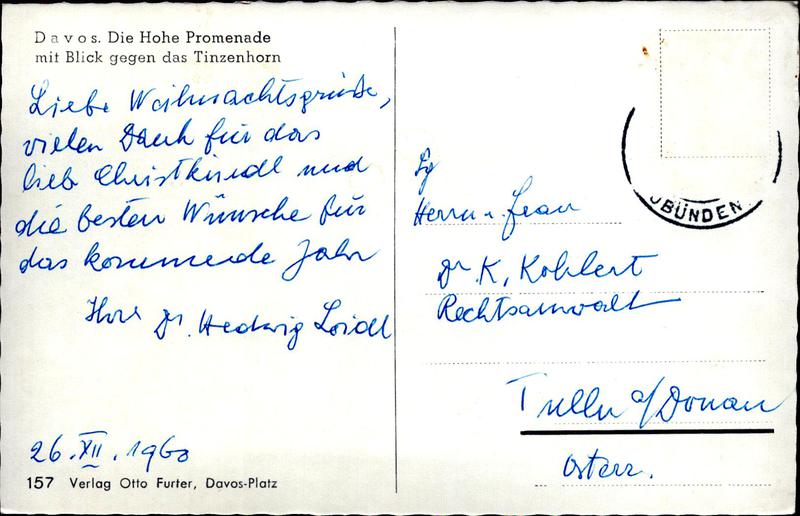 Davos. Die Hohe Promenade
mit Blick gegen das Tinzenhorn
Liebe Weihnachtsgrüße,
vielen Dank für das
lieb Christkindl und
die besten Wünsche für
das kommende Jahr
Ihre Dr. Hedwig Loidl
26. XII. 1960
157 Verlag Otto Furter, Davos-Platz
BÜNDEN
Herrn u. Frau
Dr K. Kohlert
Rechtsanwalt
Tulln a/Donau
Österr.